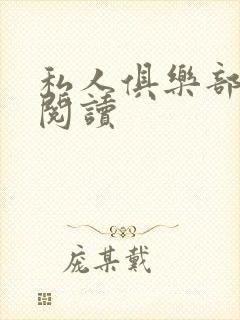 私人俱樂部
閱讀
庞某戴